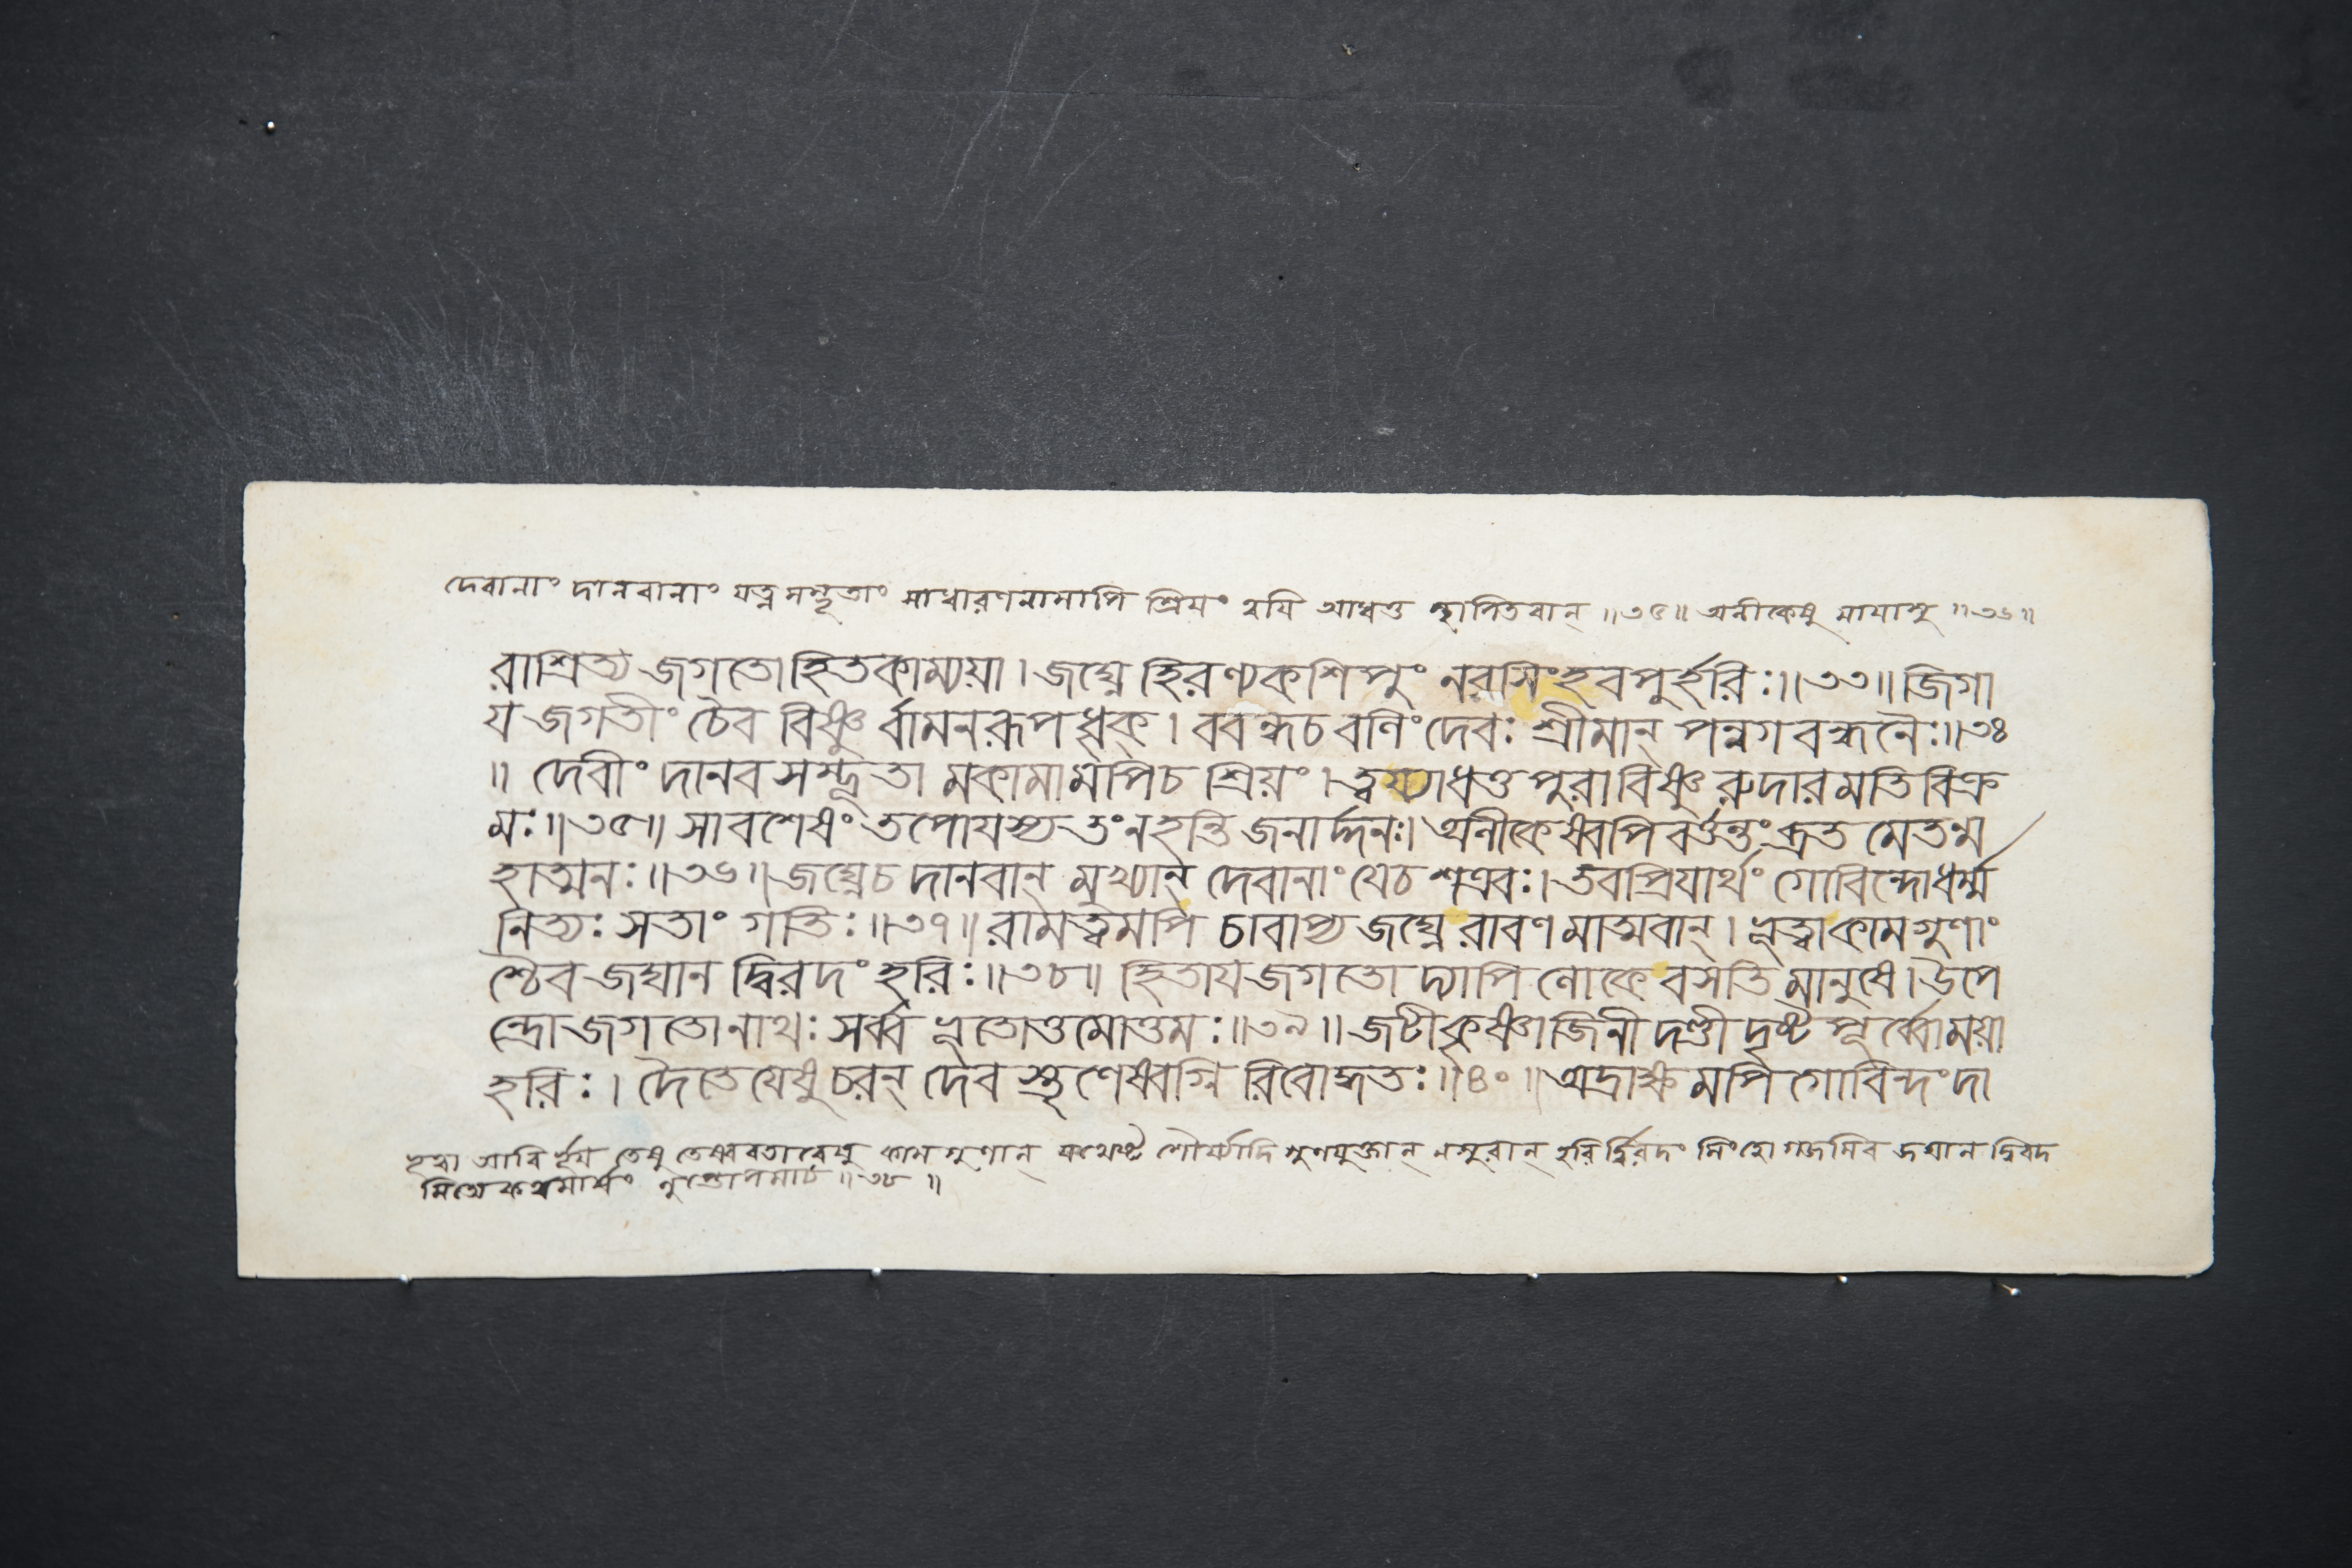 দেবানাং দানবানাং যত্নসম্ভূতাং সাধারণনামাপি শ্রিয়ং ত্বয়ি আধত্ত স্থাপিতবান্ ॥৩৫॥ অনীকেষু মায়াসু ॥৩৬॥
রাশ্রিত্য জগতো হিতকাম্যয়া । জঘ্নে হিরণ্যকশিপুং নরসিংহবপুর্হরিঃ ॥৩৩॥ জিগা
য জগতীং চৈব বিষ্ণু র্বামনরূপধৃক্ । ববন্ধচ বলিং দেবঃ শ্রীমান্ পন্নগ বন্ধনৈঃ ॥৩৪
॥ দেবীং দানব সম্ভূতা মকামামপিচ শ্রিয়ং । ত্বয্যাধত্ত পুরাবিষ্ণু রুদারমতিবিক্র
মঃ ॥৩৫॥ সাবশেষং তপোযস্য তংনহন্তি জনার্দ্দনঃ । অনীকেষ্বপি বর্ত্তন্তং ব্রত মেতন্ম
হাত্মনঃ ॥৩৬॥ জঘ্নেচ দানবান্ মুখ্যান্ দেবানাং যেচ শত্রবঃ । তবপ্রিয়ার্থং গোবিন্দোধর্ম্ম
নিত্যঃ সতাং গতিঃ ॥৩৭॥ রামত্বমপি চাবাপ্য জঘ্নে রাবণ মাত্মবান্ । ভূত্বাকামগুণাং
শ্চৈব জঘান দ্বিরদং হরিঃ ॥৩৮॥ হিতায়জগতো দ্যাপি লোকে বসতি মানুষে । উপে
ন্দ্রো জগতোনাথঃ সর্ব্ব ভূতোত্তমোত্তমঃ ॥৩৯॥ জটী কৃষ্ণাজিনী দণ্ডী দৃষ্ট পূর্ব্বোময়া
হরিঃ । দৈতেযেষু চরন্ দেব স্তৃণেষ্বগ্নি রিবোদ্ধতঃ ॥৪০॥ অদ্রাক্ষ মপি গোবিন্দং দা
তেষু তেষ্ববতারেষু কামগুণান্ যথেষ্ট শৌর্য্যাদি গুণযুক্তান্ হরির্দ্বিরদং সিংহো গজমিব জঘান দ্বিরদ
॥৩৮॥